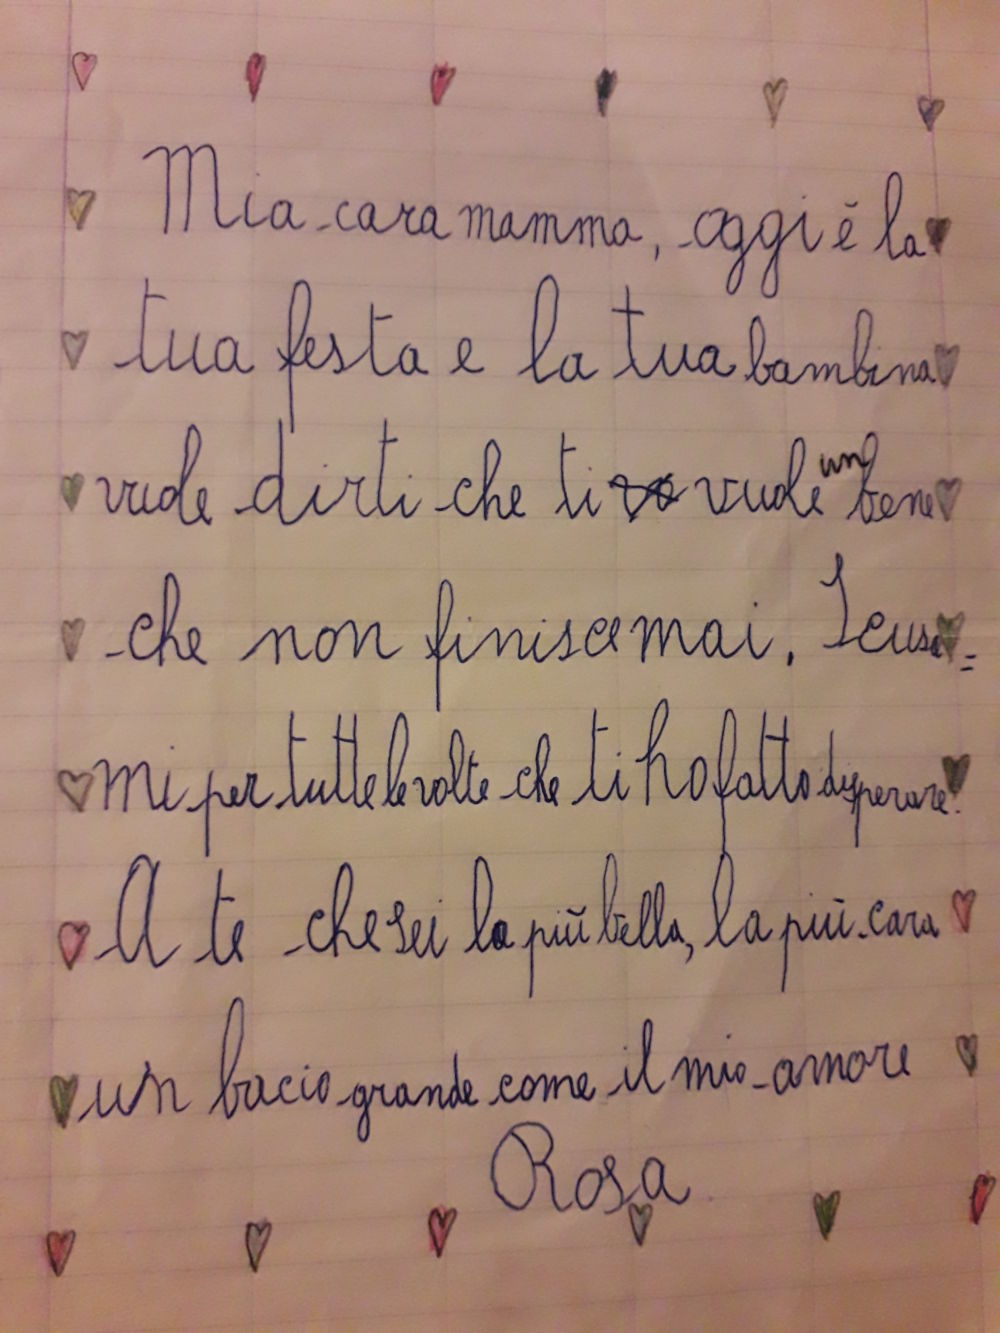 Mia cara mamma, oggi è la
tua festa e la tua bambina
vuole dirti che ti vuole un bene
che non finisce mai. Scusa=
mi per tutte le volte che ti ho fatto disperare.
A te che sei la più bella, la più cara
un bacio grande come il mio amore
Rosa